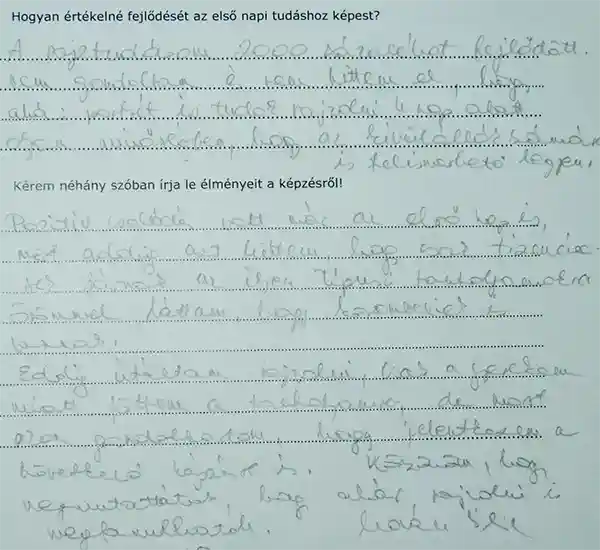 Hogyan értékelné fejlődését az első napi tudáshoz képest?
A rajztudásom 2000 százalékot fejlődött.
Nem gondoltam és nem hittem el, hogy
akár portrét is tudok rajzolni 4 nap alatt
olyan minőségben, hogy az kívülállók számára
is felismerhető legyen.
Kérem néhány szóban írja le élményeit a képzésről!
Pozitív csalódás volt már az első nap is,
mert addig azt hittem, hogy csak
az ilyen típusú tanfolyamokra
Örömmel láttam, hogy korombeliek is
vannak.
Eddig utáltam rajzolni, csak a gyerekem
miatt jöttem a tanfolyamra, de most
azon gondolkodom, hogy jelentkezem a
következő képzésre is. Köszönöm, hogy
megmutattátok, hogy akár rajzolni is
megtanulhatok.